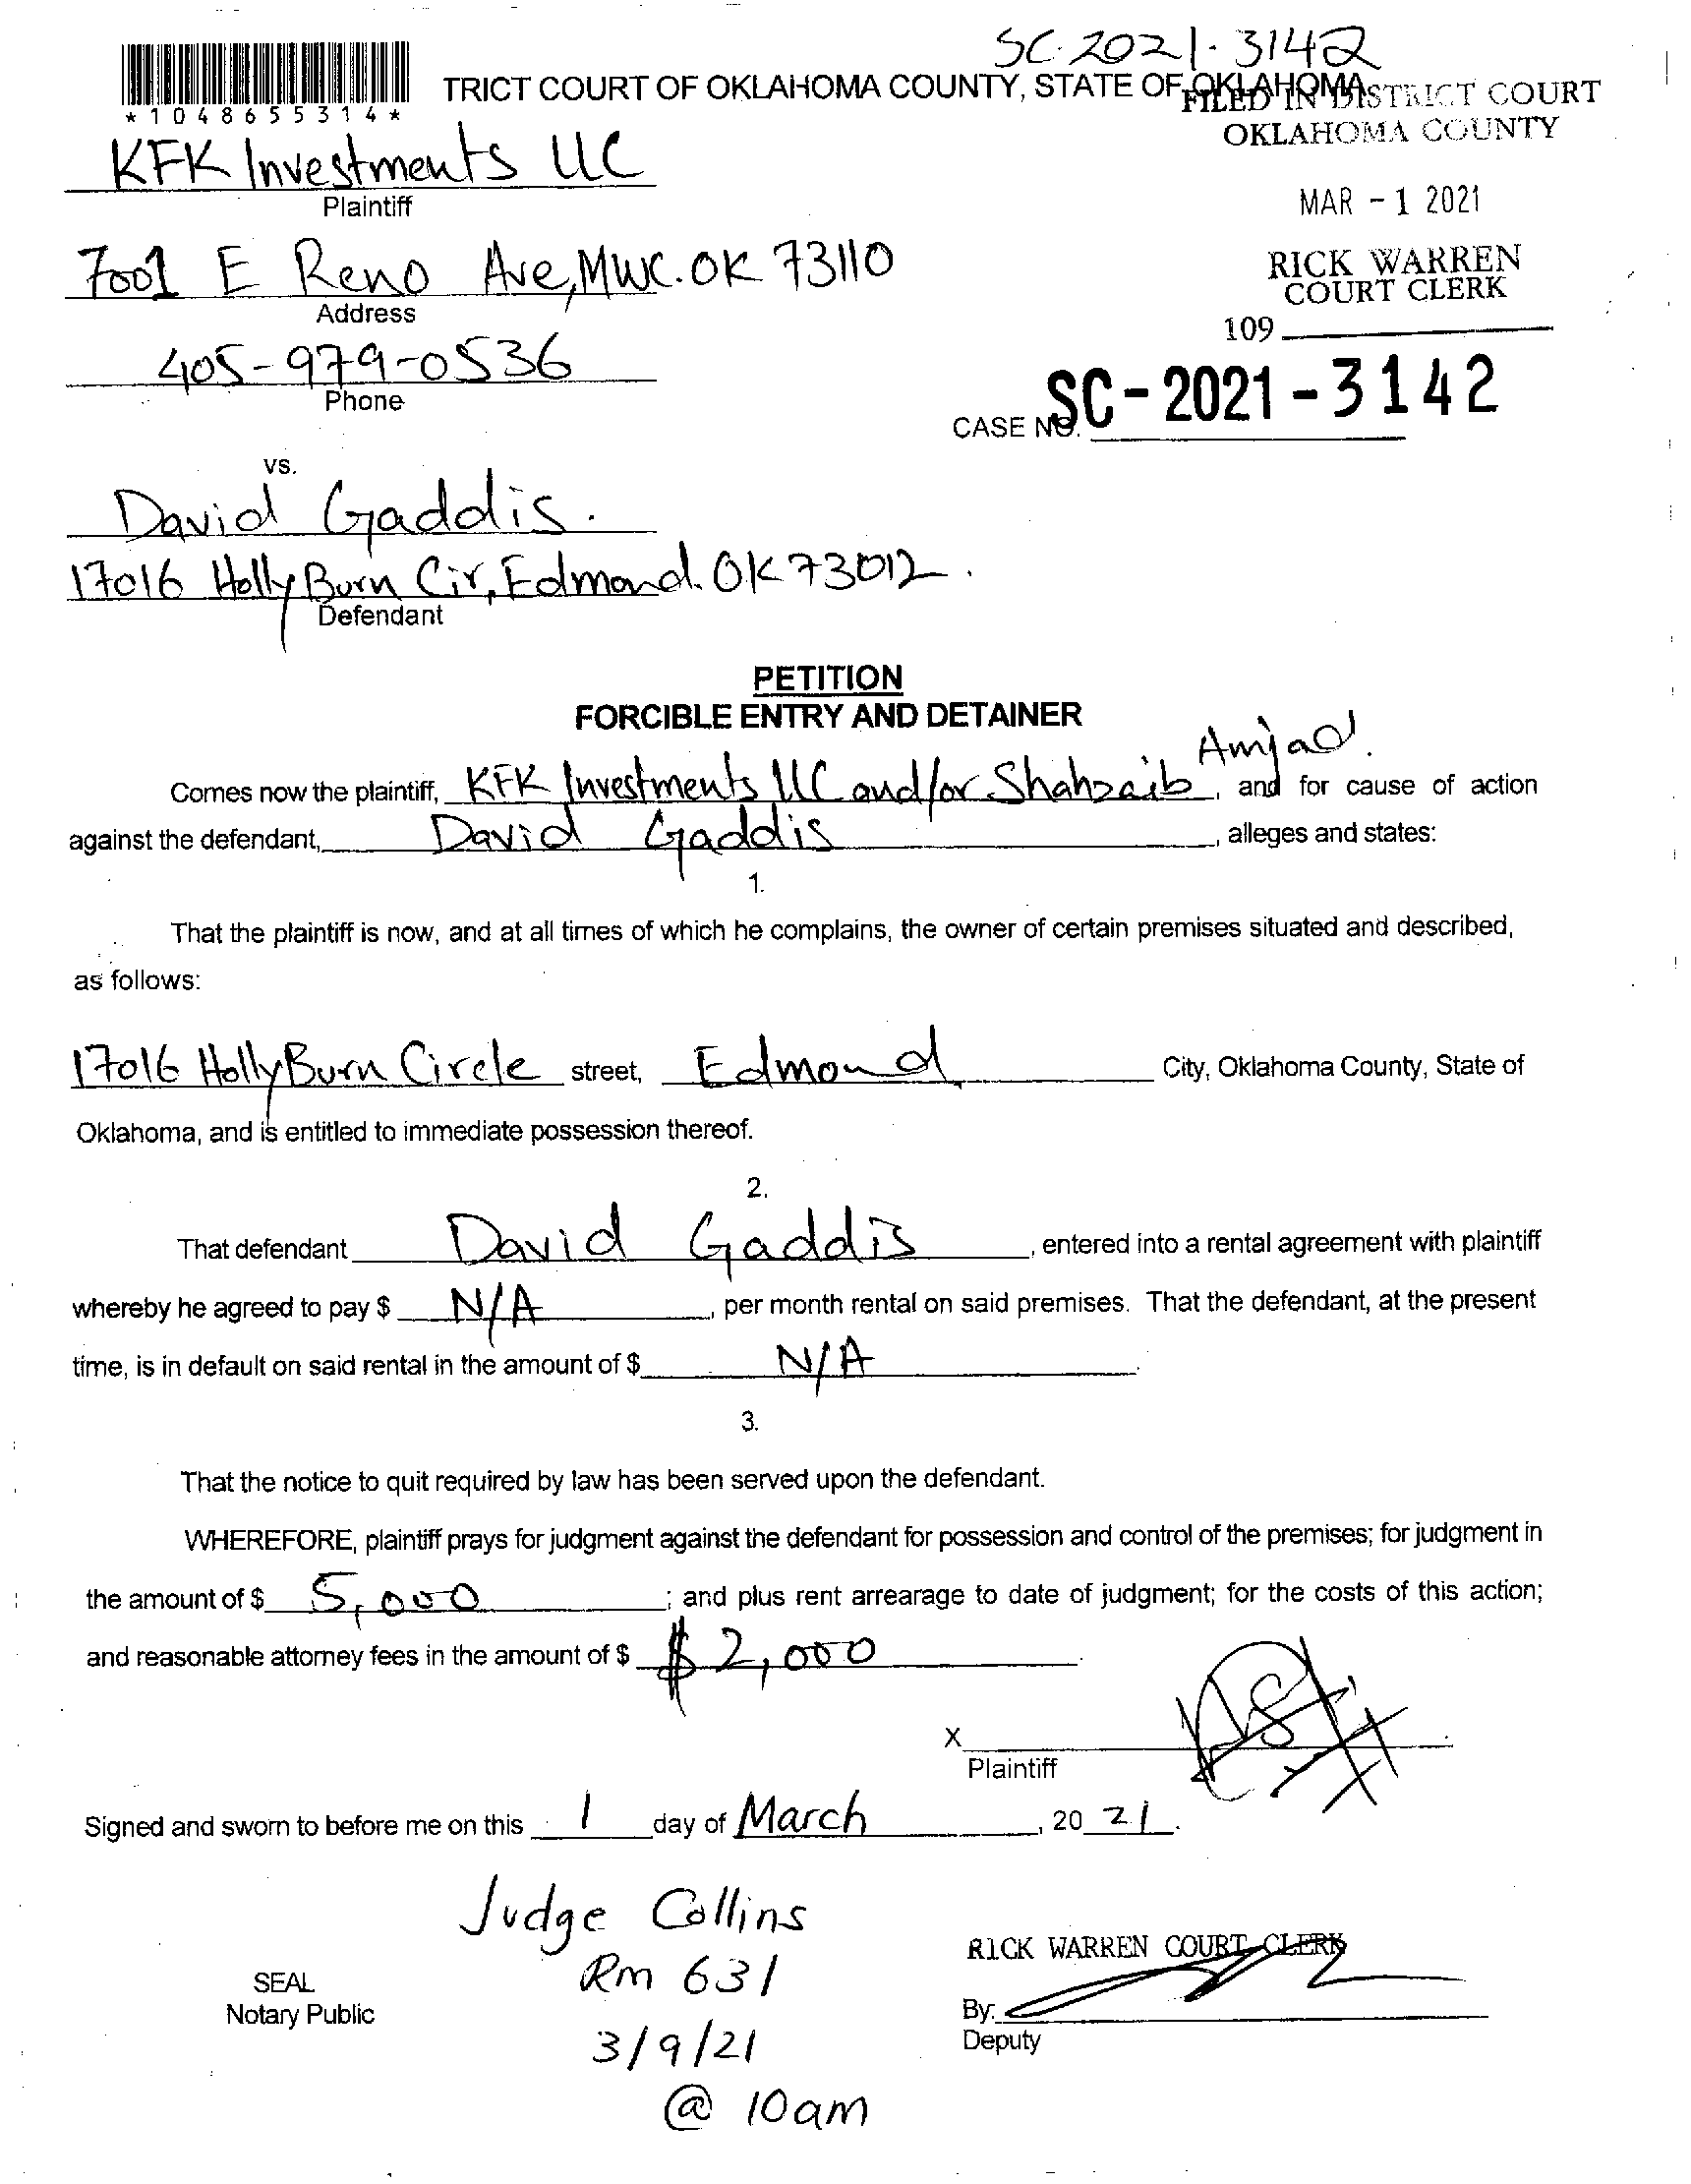 SC-2021-3142
TRICT COURT OF OKLAHOMA COUNTY, STATE OF OKLAHOMA
FILED IN DISTRICT COURT
OKLAHOMA COUNTY
*1048655314*
KFK Investments LLC
Plaintiff
MAR - 1 2021
7001 E Reno Ave, MWC. OK 73110
Address
RICK WARREN
COURT CLERK
109
405-979-0536
Phone
CASE NO. SC-2021-3142
vs.
David Gaddis.
17016 Holly Burn Cir, Edmond. OK 73012.
Defendant
PETITION
FORCIBLE ENTRY AND DETAINER
Comes now the plaintiff, KFK Investments LLC and/or Shahzaib Amjad. , and for cause of action
against the defendant, David Gaddis , alleges and states:
1.
That the plaintiff is now, and at all times of which he complains, the owner of certain premises situated and described,
as follows:
17016 Holly Burn Circle street, Edmond City, Oklahoma County, State of
Oklahoma, and is entitled to immediate possession thereof.
2.
That defendant David Gaddis , entered into a rental agreement with plaintiff
whereby he agreed to pay $ N/A , per month rental on said premises. That the defendant, at the present
time, is in default on said rental in the amount of $ N/A .
3.
That the notice to quit required by law has been served upon the defendant.
WHEREFORE, plaintiff prays for judgment against the defendant for possession and control of the premises; for judgment in
the amount of $ 5,000 ; and plus rent arrearage to date of judgment; for the costs of this action;
and reasonable attorney fees in the amount of $ $2,000 .
X
Plaintiff
Signed and sworn to before me on this 1 day of March , 20 21.
Judge Collins
Rm 631
3/9/21
@ 10am
SEAL
Notary Public
RICK WARREN COURT CLERK
By:
Deputy